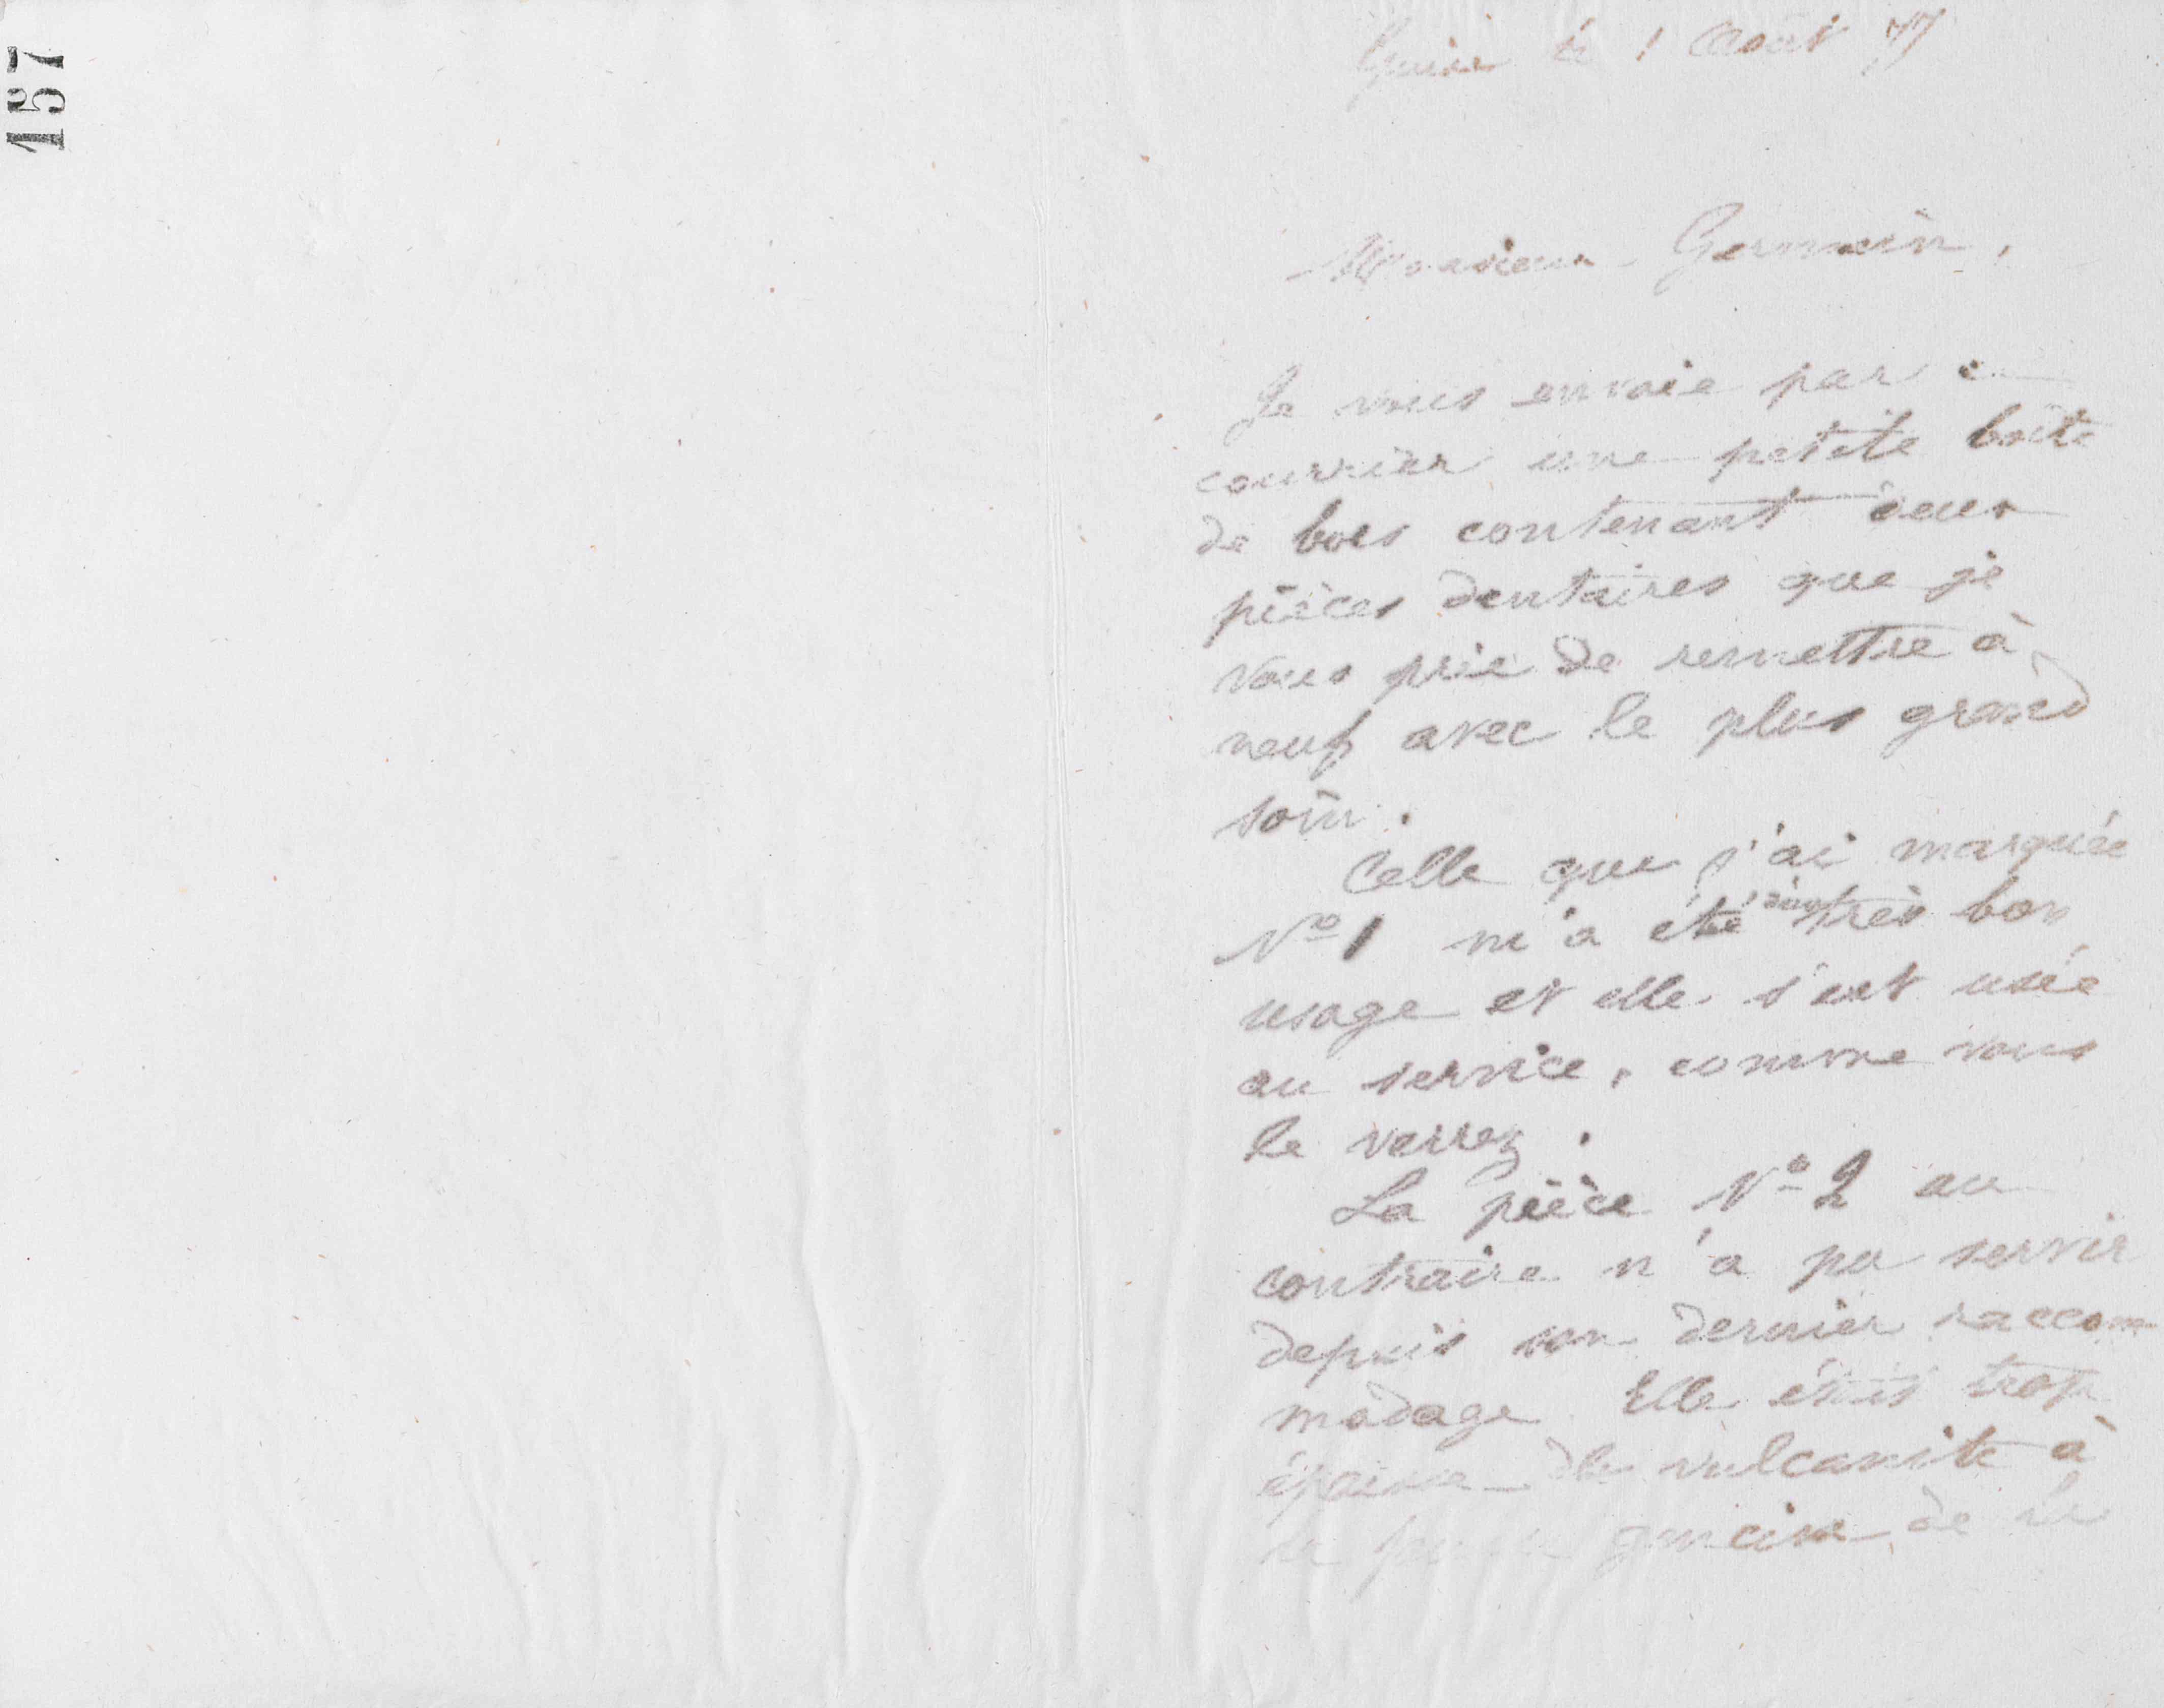 157
Guise le 1 Août 77
Monsieur Germain,
Je vous envoie par ce
courrier une petite boîte
de bois contenant deux
pièces dentaires que je
vous prie de remettre à
neuf avec le plus grand
soin.
Celle que j'ai marquée
Nº 1 m'a été d'un très bon
usage et elle s'est usée
au service, comme vous
le verrez.
La pièce Nº 2 au
contraire n'a pu servir
depuis son dernier raccom
modage. Elle était trop
épaisse de vulcanite à
la gencive de la